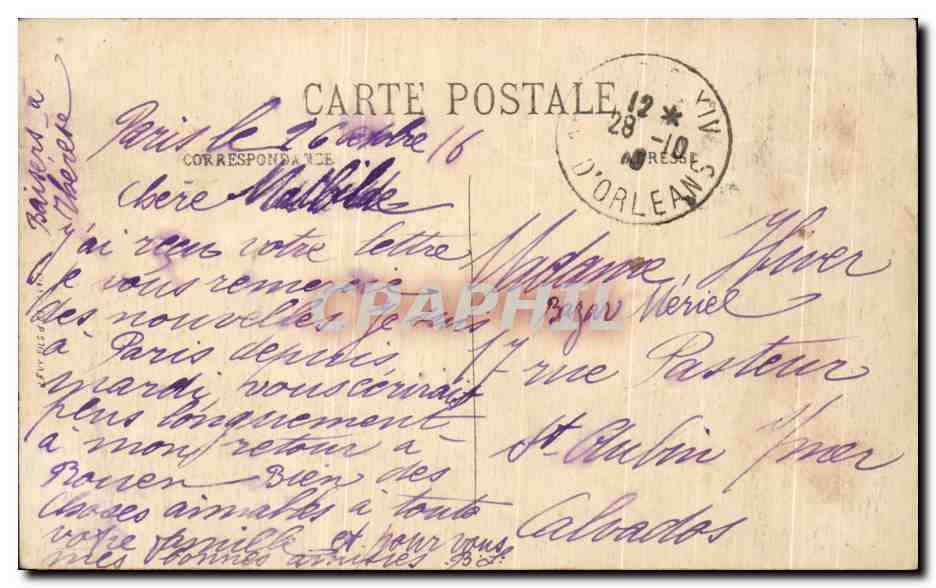 CARTE POSTALE
CORRESPONDANCE
ADRESSE
12 *
28 -10
D'ORLEANS
Baisers à
Thérèse
Paris le 26 16
Chère Mathilde
j'ai reçu votre lettre
je vous remercie
des nouvelles, je suis
à Paris depuis
mardi, vous
plus longuement
à mon retour à
Rouen Bien des
choses aimables à toute
votre famille et pour vous
mes bonnes amitiés
Madame Hiver
Bazar Mériel
17 rue Pasteur
St Aubin s/mer
Calvados
CPAPHIL